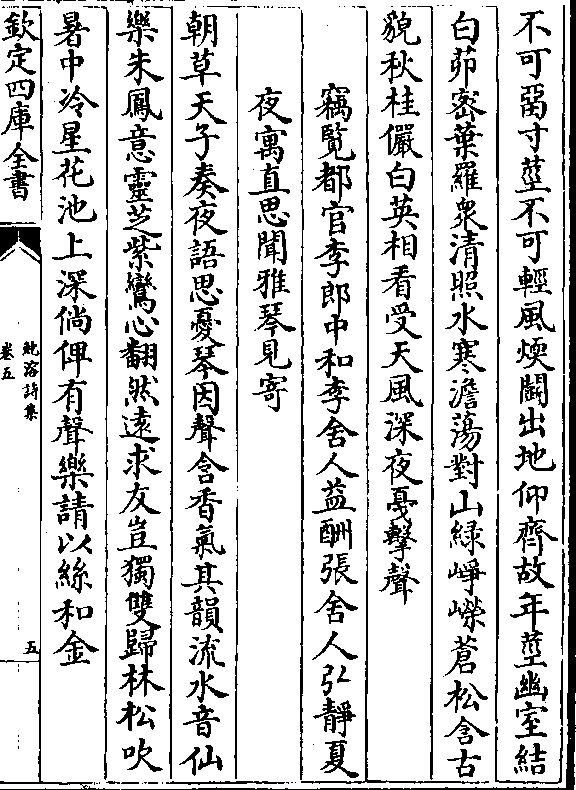 不可罶寸莖不可輕風煗鬭出地仰齊故年莖幽室結
白茆密葉羅衆清照水寒澹蕩對山緑崢嶸蒼松含古
貌秋桂儼白英相看受天風深夜戞擊聲
竊覽都官李郎中和李舍人益酬張舍人弘靜夏
夜寓直思聞雅琴見寄
朝草天子奏夜語思憂琴因聲含香氣其韻流水音仙
樂朱鳳意靈芝紫鸞心翻然逺求友豈獨雙歸林松吹
暑中冷星花池上深倘俾有聲樂請以絲和金
欽定四庫全書
卷五
五